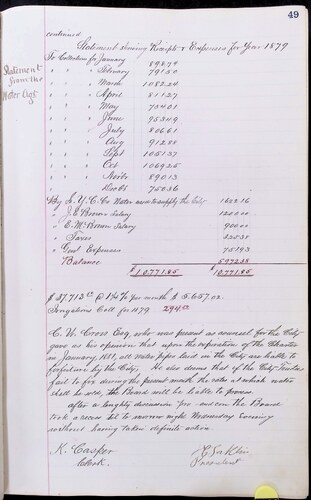 49
continued
Statement showing Receipts & Expenses for Year 1879
Statement
from the
Water Agt
To Collections for January 898 79
" " " February 791 50
" " " March 1082 24
" " " April 811 27
" " " May 704 01
" " " June 953 49
" " " July 806 61
" " " Aug 912 88
" " " Sept 1051 37
" " " Oct 1069 25
" " " 890 13
" " " 750 36
By S. Y. C. Co Water used to supply the City
" J. E. Brown Salary 1200 00
" E. M. Brown Salary 900 00
" Taxes
" Genl Expenses
Balance
10,771.85 10,771.85
per month $
Coll for 1879 294
C. W. Cross Esq, who was present as counsel for the City
gave as his opinion that upon the expiration of the Charter
in January, 1881, all water pipes laid in the City are liable to
forfeiture by the City. He also deems that if the City Trustees
fail to fix during the present month the rates at which water
shall be sold, the Board will be liable to
after a lengthy discussion the Board
took a recess till to morrow night Wednesday evening
without having taken definite action.
K. Casper
Clerk.
President